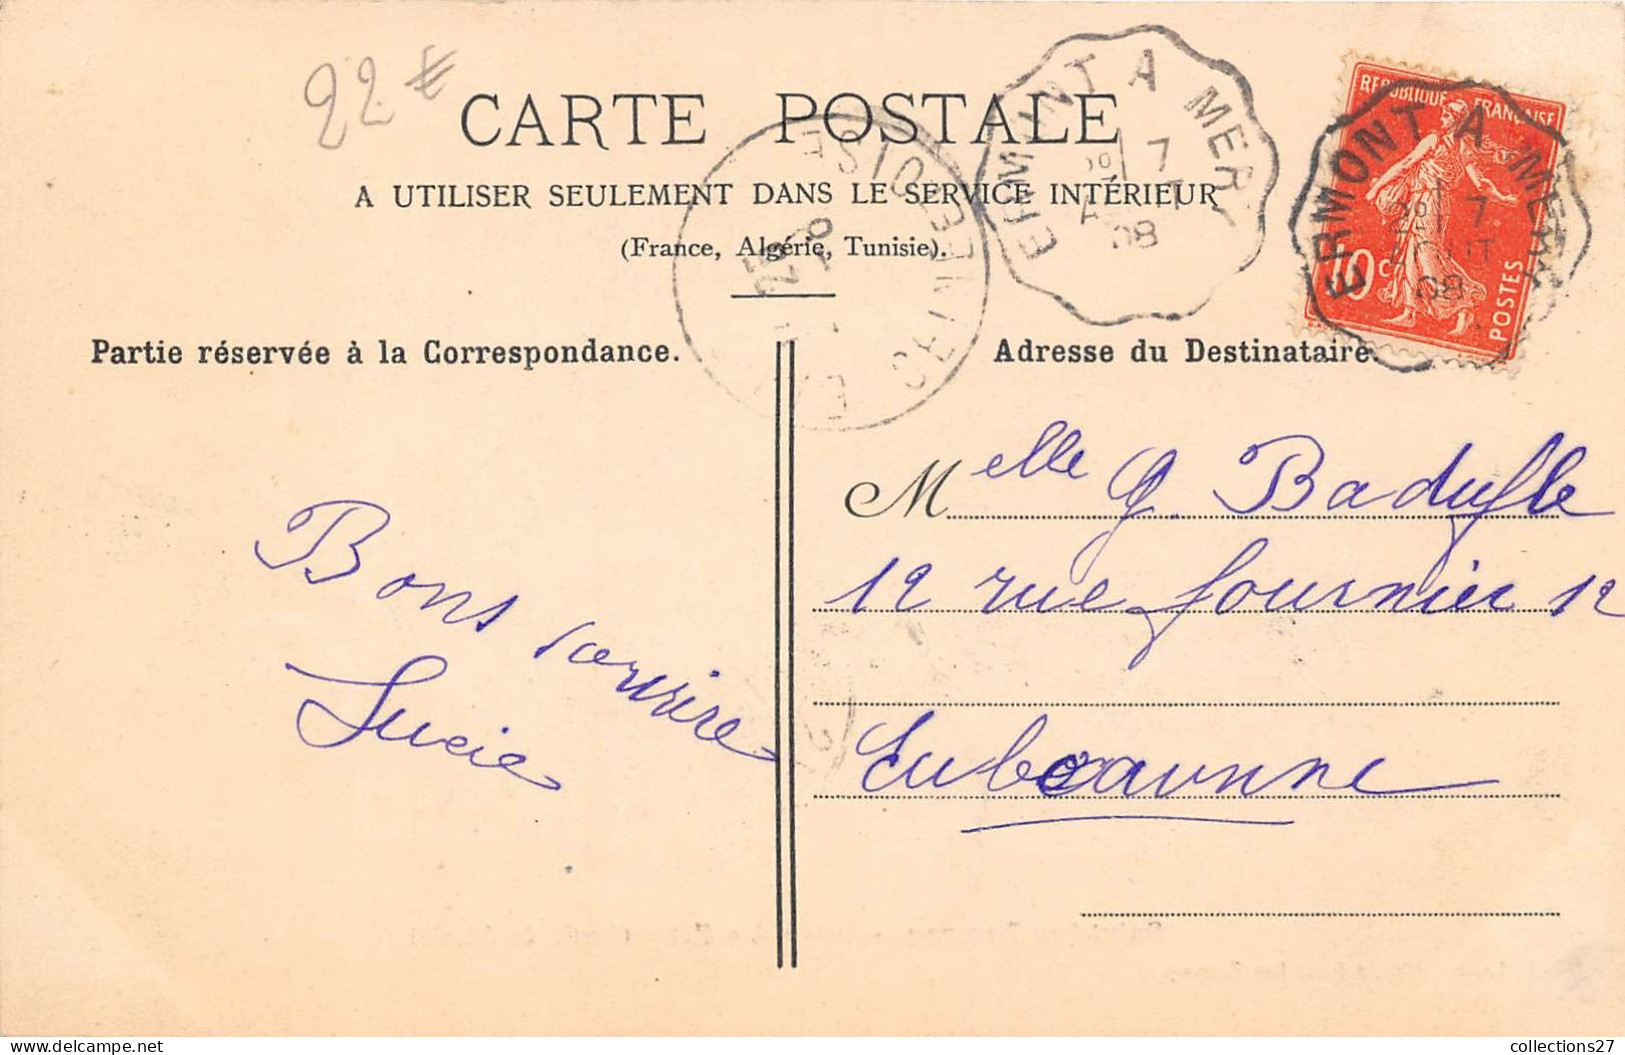 22 €
CARTE POSTALE
A UTILISER SEULEMENT DANS LE SERVICE INTÉRIEUR
(France, Algérie, Tunisie).
ERMONT A MERY
7
AOUT
08
RÉPUBLIQUE FRANÇAISE
10 c
POSTES
ERMONT A MERY
7
AOUT
08
SEINE-ET-OISE
Partie réservée à la Correspondance.
Adresse du Destinataire
Bons sourire
Lucie
Melle G. Badufle
12 rue fournier 12
Eubonne
collections27